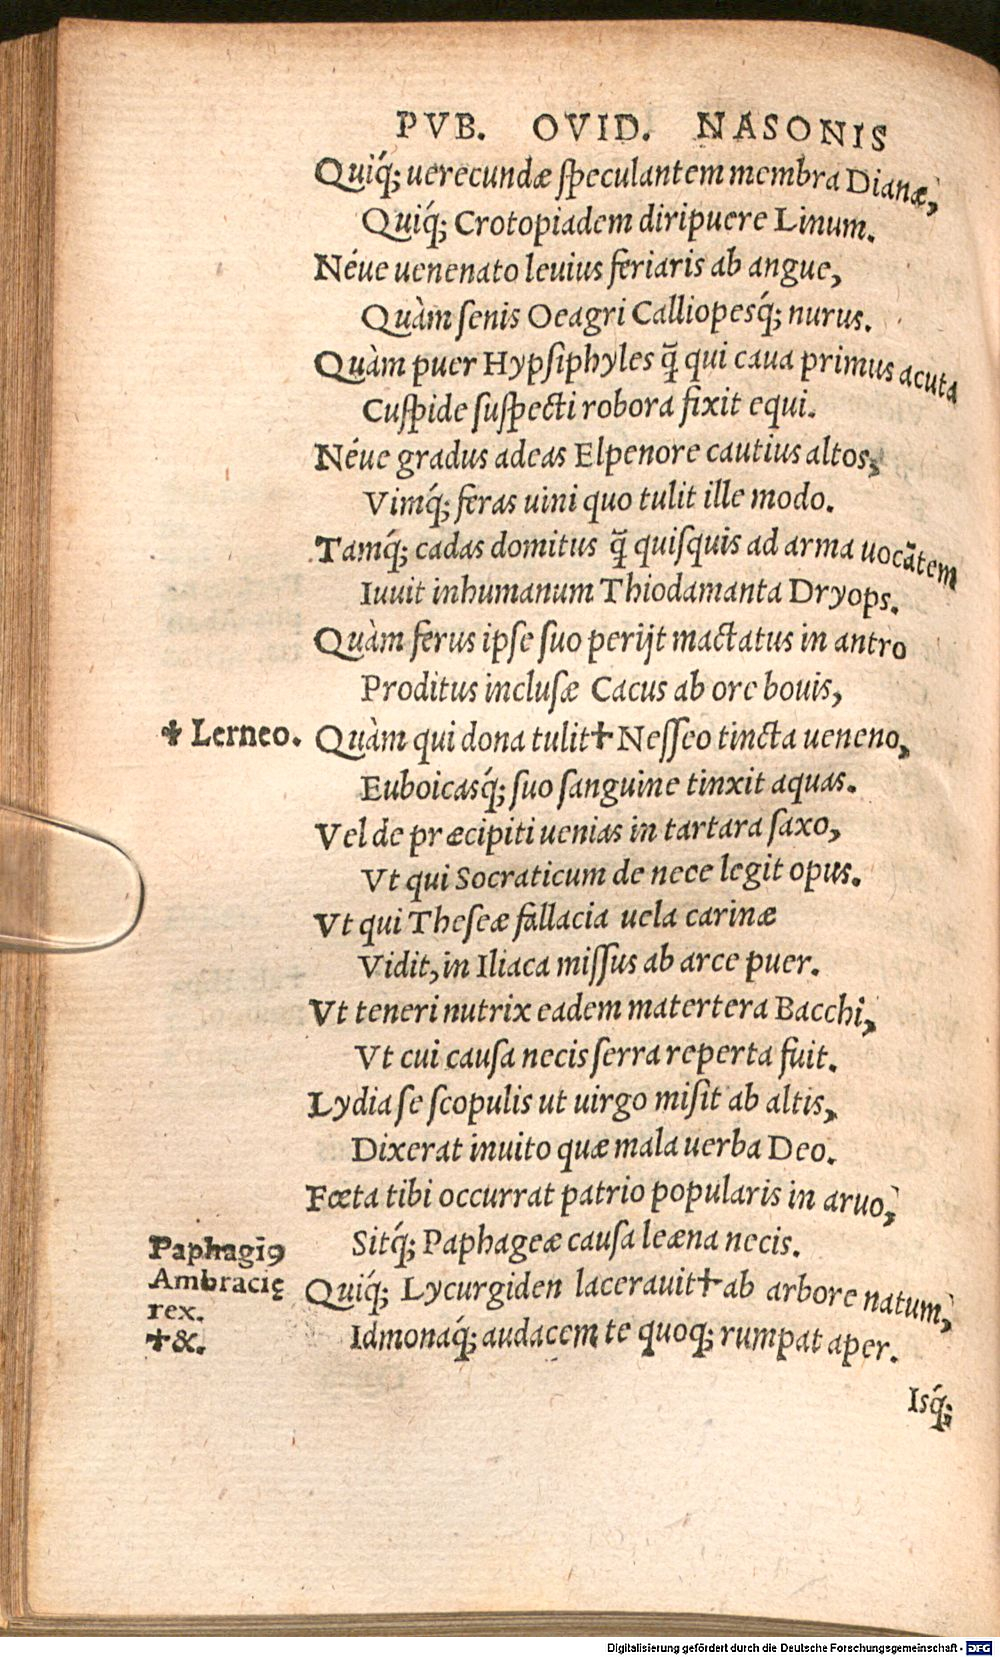 PVB. OVID. NASONIS
Quiq́; uerecundæ ſpeculantem membra Dianæ,
Quiq́; Crotopiadem diripuere Linum.
Néue uenenato leuius feriaris ab angue,
Quàm ſenis Oeagri Calliopesq́; nurus.
Quàm puer Hypſiphyles q̃ qui caua primus acuta
Cuſpide ſuſpecti robora fixit equi.
Néue gradus adeas Elpenore cautius altos,
Vimq́; feras uini quo tulit ille modo.
Tamq́; cadas domitus q̃ quiſquis ad arma uocãtem
Iuuit inhumanum Thiodamanta Dryops.
Quàm ferus ipſe ſuo perijt mactatus in antro
Proditus incluſæ Cacus ab ore bouis,
✝ Lerneo. Quàm qui dona tulit✝Neſſeo tincta ueneno,
Euboicasq́; ſuo ſanguine tinxit aquas.
Vel de præcipiti uenias in tartara ſaxo,
Vt qui Socraticum de nece legit opus.
Vt qui Theſeæ fallacia uela carinæ
Vidit, in Iliaca miſſus ab arce puer.
Vt teneri nutrix eadem matertera Bacchi,
Vt cui cauſa necis ſerra reperta fuit.
Lydia ſe ſcopulis ut uirgo miſit ab altis,
Dixerat inuito quæ mala uerba Deo.
Fœta tibi occurrat patrio popularis in aruo,
Sitq́; Paphageæ cauſa leæna necis.
Paphagiꝰ
Ambracię
rex.
✝&.
Quiq́; Lycurgiden lacerauit✝ab arbore natum,
Idmonaq́; audacem te quoq; rumpat aper.
Isq́;
Digitalisierung gefördert durch die Deutsche Forschungsgemeinschaft - DFG